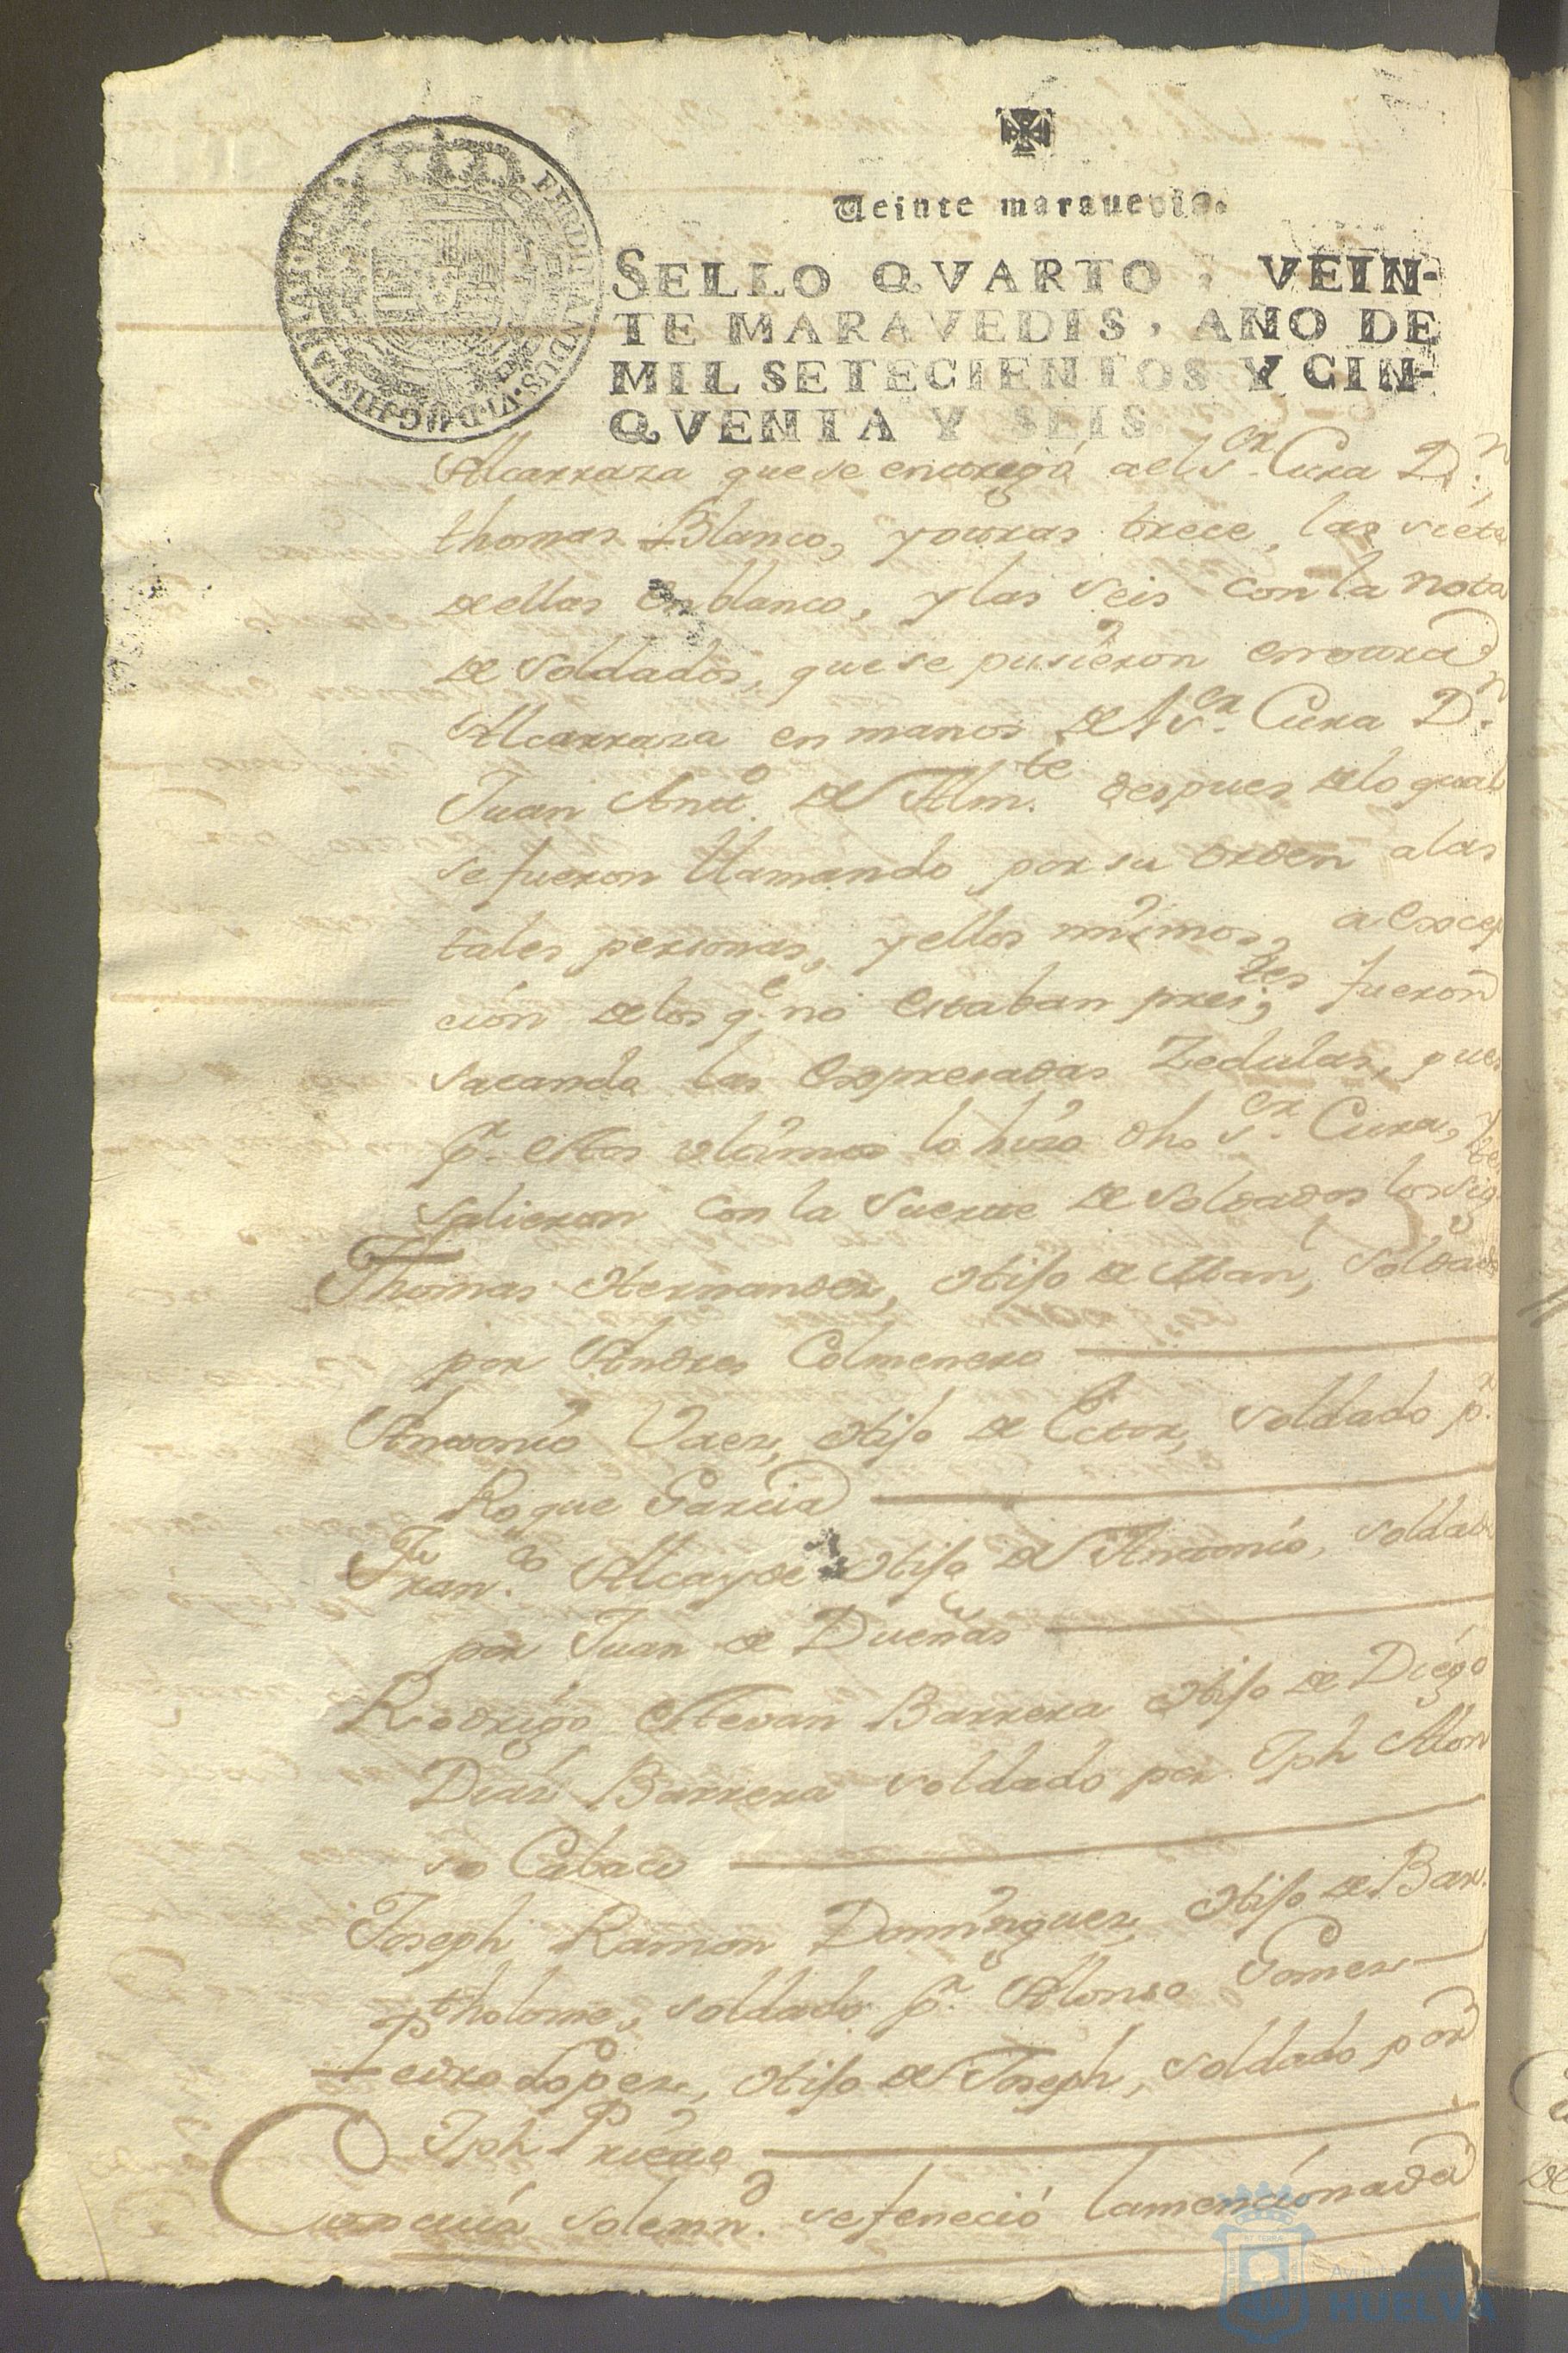 Veinte marauedis.
SELLO QVARTO, VEIN-
TE MARAVEDIS, AÑO DE
MIL SETECIENTOS Y CIN-
QVENTA Y SEIS.
Alcarraza que se entregó a el Sr. Cura Dn.
thomas Blanco, y otras trece, las siete
de ellas en blanco, y las seis con la nota
de soldados, que se pusieron en otra
Alcarraza en manos de el Sr. Cura Dn.
Juan Anto. de Alm.te despues de lo qual
se fueron llamando por su orden a las
tales personas, y ellos mismos, a excep
ción de los qe. no estaban pres.tes fueron
sacando las expresadas Zedulas, pues
pr. estos ultimos lo hizo dho Sr. Cura, y
salieron con la suerte de soldados los sig.tes
Thomas Hernandez, Hijo de Man, soldado
por Andres Colmenero
Antonio Vaez, Hijo de Ector, soldado pr.
Roque Garcia
Fran.co Alcayde Hijo de Antonio, soldado
por Juan de Dueñas
Rodrigo Estevan Barrera Hijo de Diego
Diaz Barrera soldado por Jph Alon
so Cabaco
Joseph Ramon Dominguez, Hijo de Bar
tholome, soldado pr. Alonso Gomez
Pedro Lopez, Hijo de Joseph, soldado por
Jph Prieto
Con cuia solemnd. se feneció la mencionada
Ayuntamiento
HUELVA